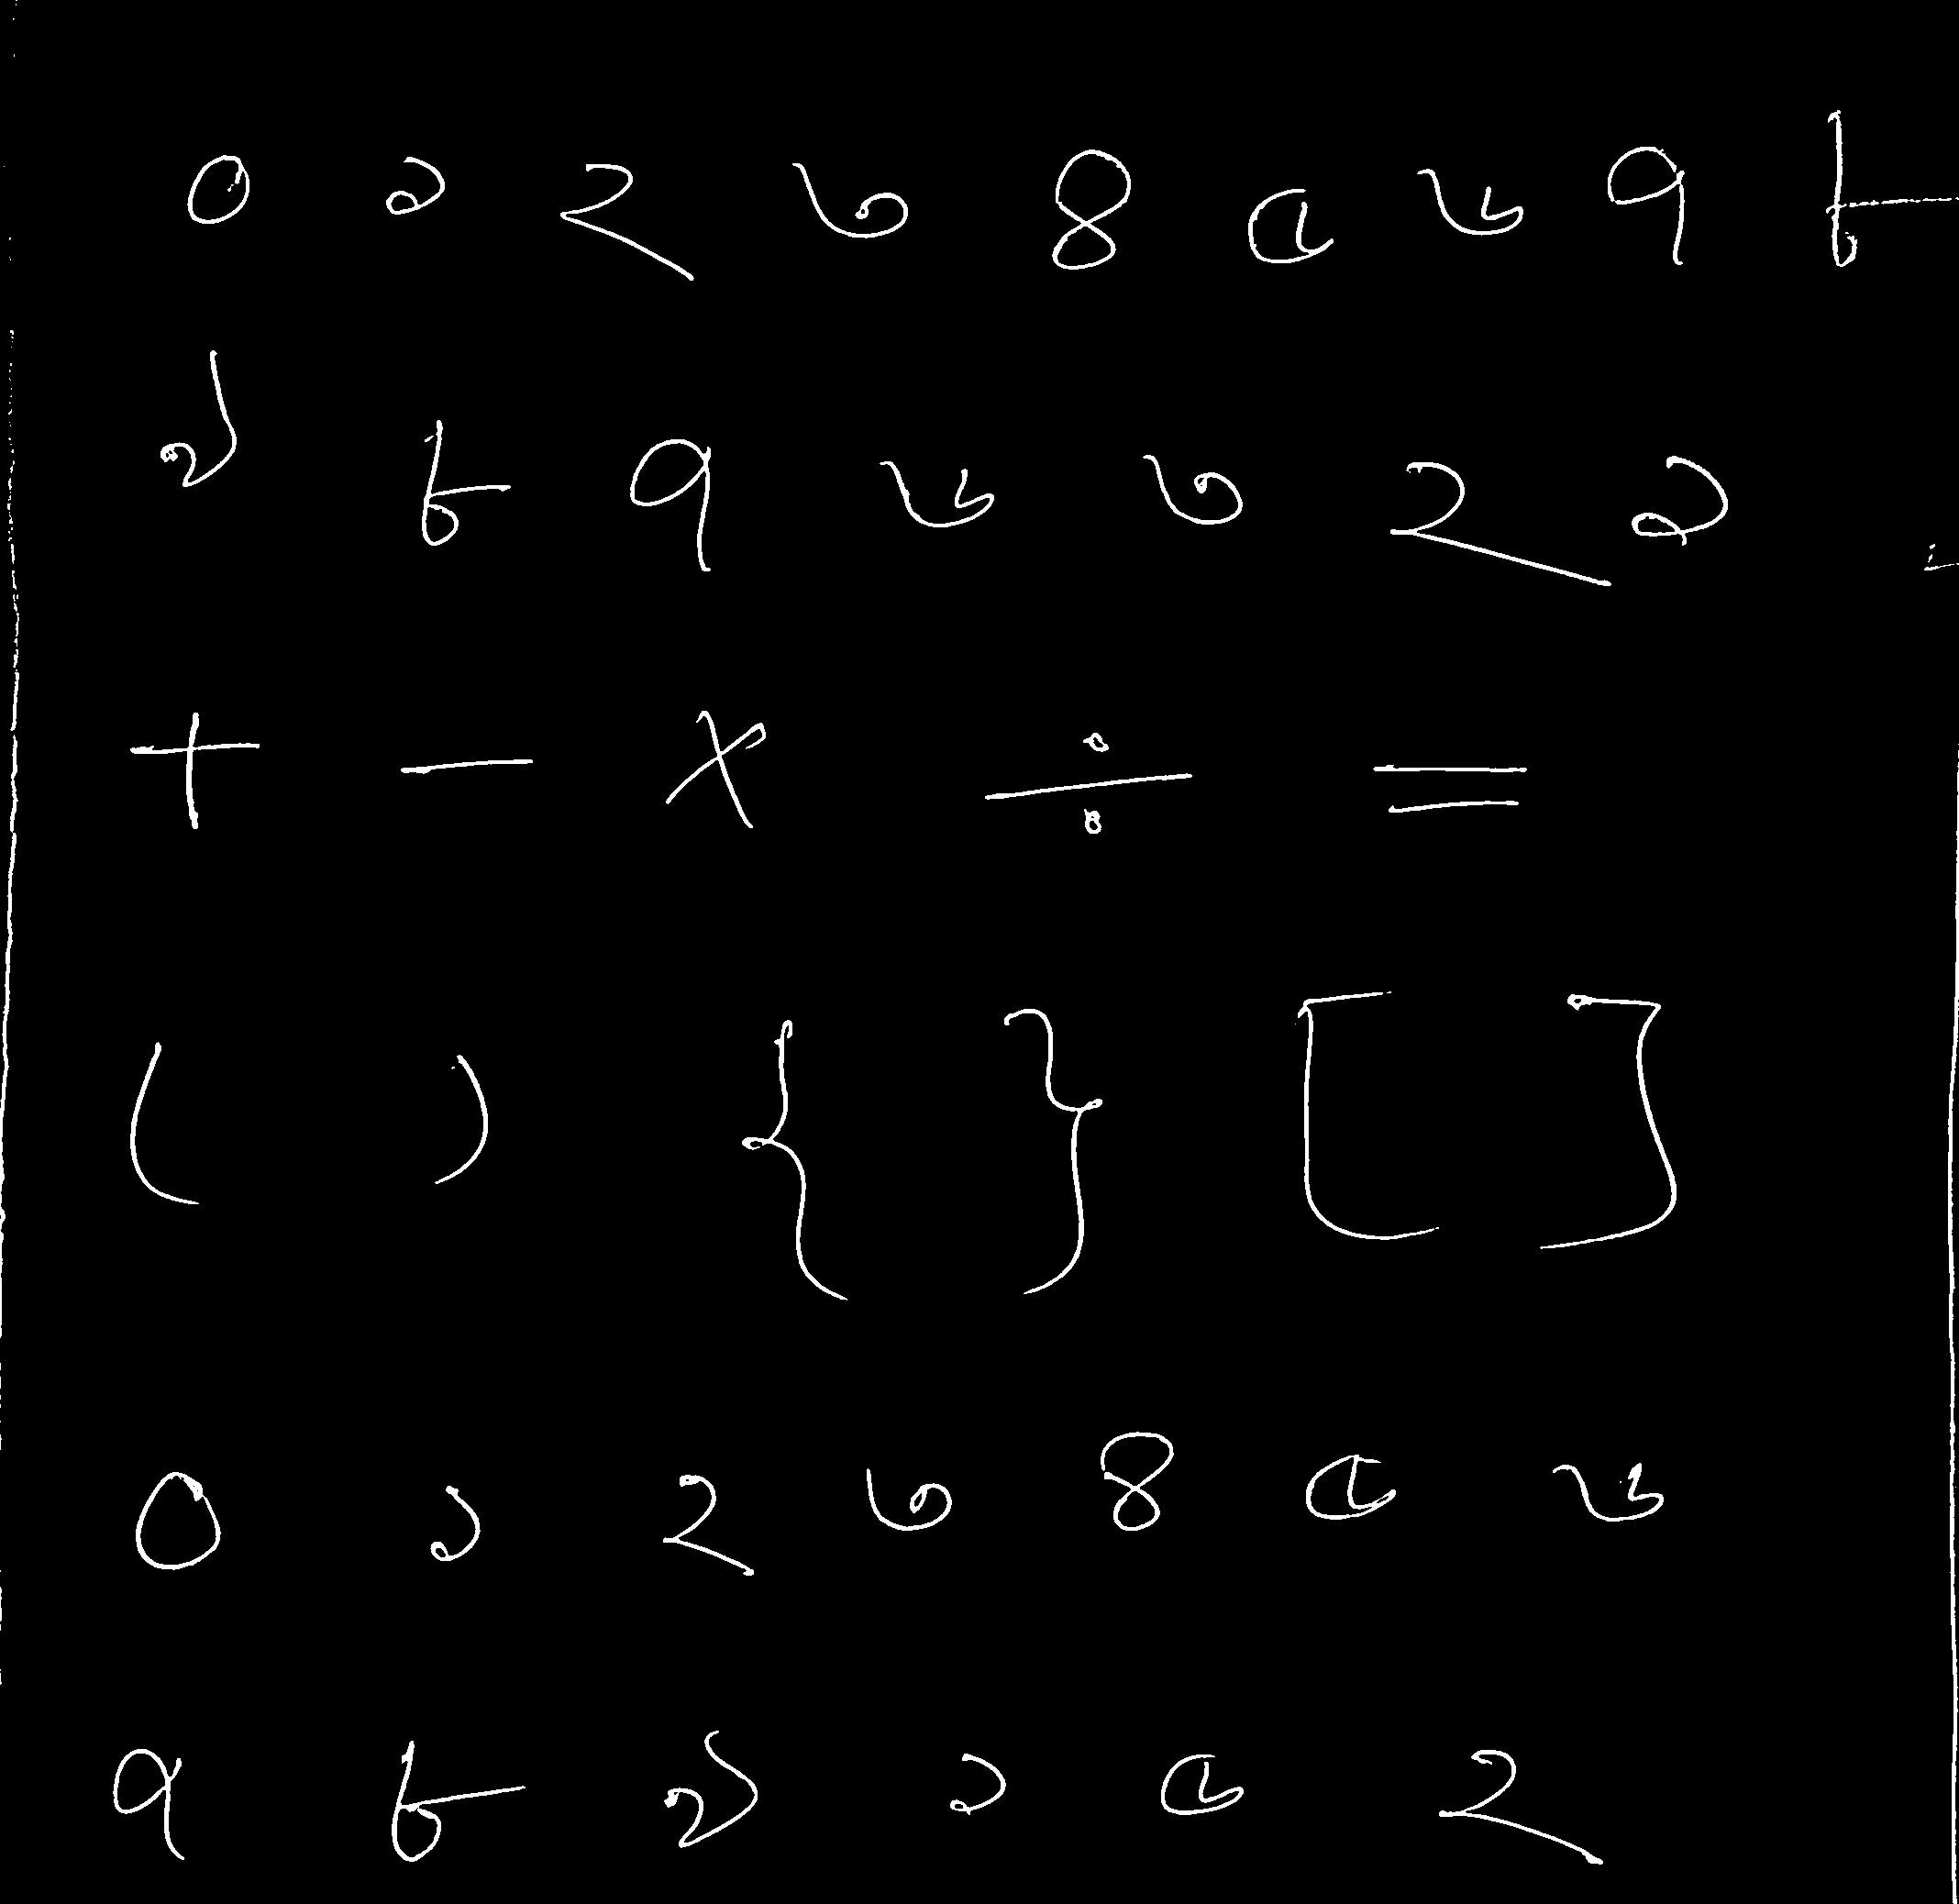 ০ ১ ২ ৩ ৪ ৫ ৬ ৭ ৮
৯ ৮ ৭ ৬ ৩ ২ ১
+ − × ÷ =
( ) { } [ ]
০ ১ ২ ৩ ৪ ৫ ৬
৭ ৮ ৯ ১ ৫ ২